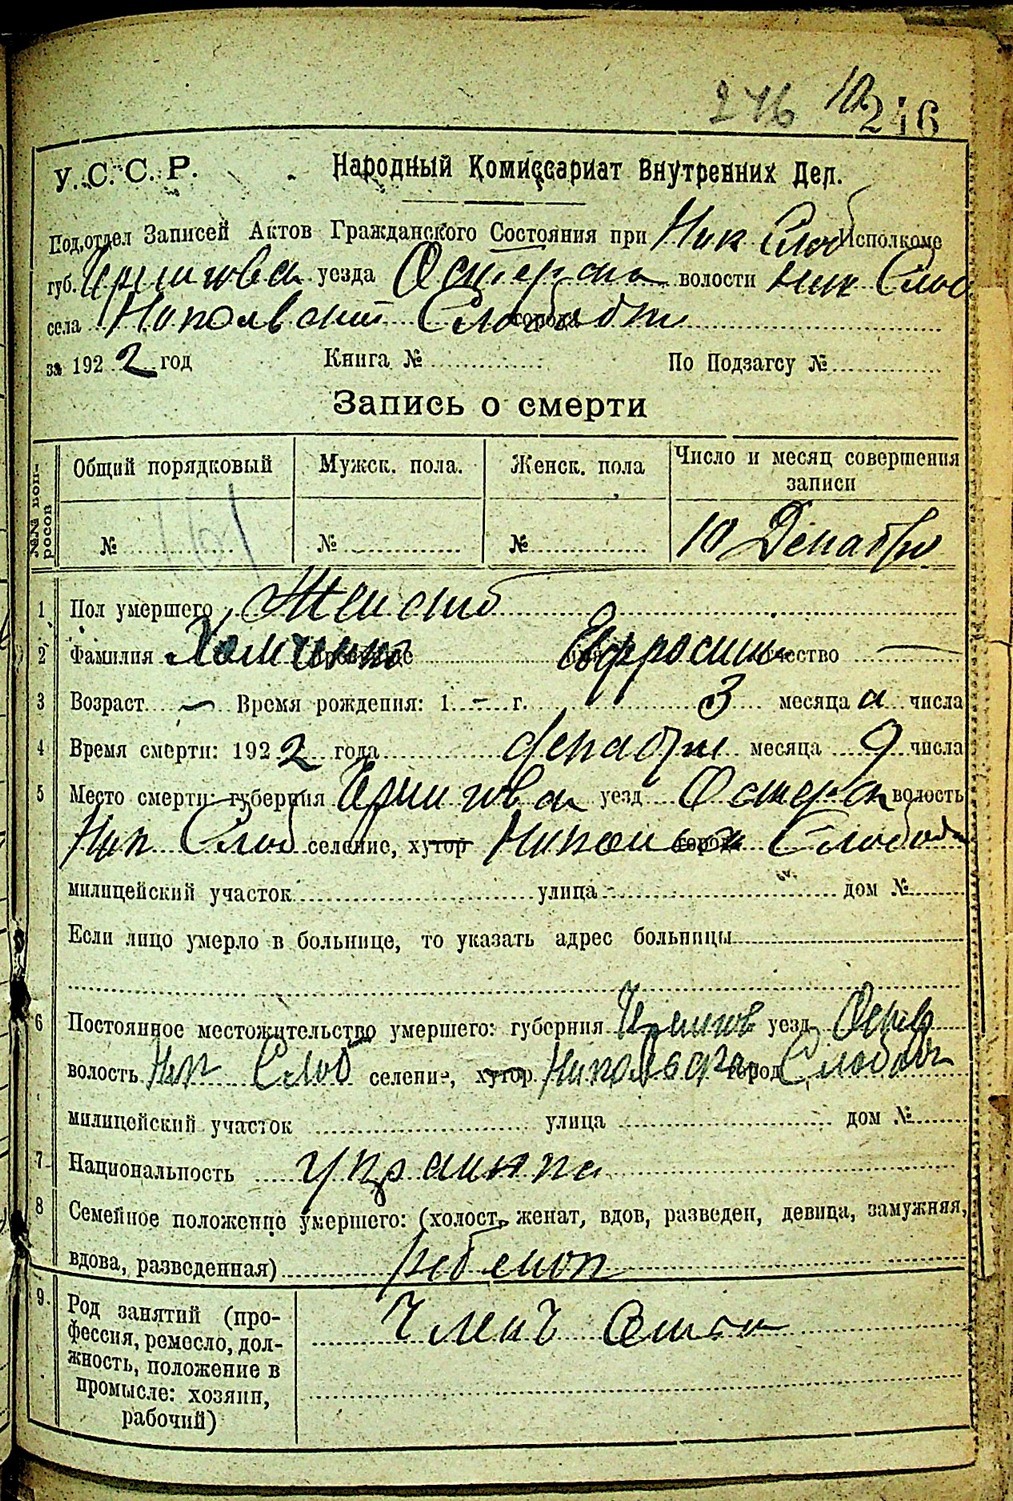 246 10 246
У. С. С. Р. Народный Комиссариат Внутренних Дел.
Под,отдел Записей Актов Гражданского Состояния при Ник Слоб Исполкоме
губ. Чернигова уезда волости Ник Слоб
села Никольской Слободки города
за 1922 год Книга № По Подзагсу №
Запись о смерти
№№ воп-росов Общий порядковый Мужск. пола. Женск. пола Число и месяц совершения записи
№ 161 № № 10 Декабря
1 Пол умершего Женский
2 Фамилия Ефросиния отчество —
3 Возраст — Время рождения: 1 - г. 3 месяца а числа
4 Время смерти: 1922 года декабря месяца 9 числа
5 Место смерти: губерния уезд волость
Ник Слоб селение, хутор город Слобод
милицейский участок улица дом №
Если лицо умерло в больнице, то указать адрес больницы
6 Постоянное местожительство умершего: губерния Чернигов уезд
волость Ник Слоб селение, хутор город
милицейский участок улица дом №
7 Национальность украинка
8 Семейное положение умершего: (холост, женат, вдов, разведен, девица, замужняя,
вдова, разведенная) ребенок
9. Род занятий (про-
фессия, ремесло, дол-
жность, положение в
промысле: хозяин,
рабочий)
Членъ